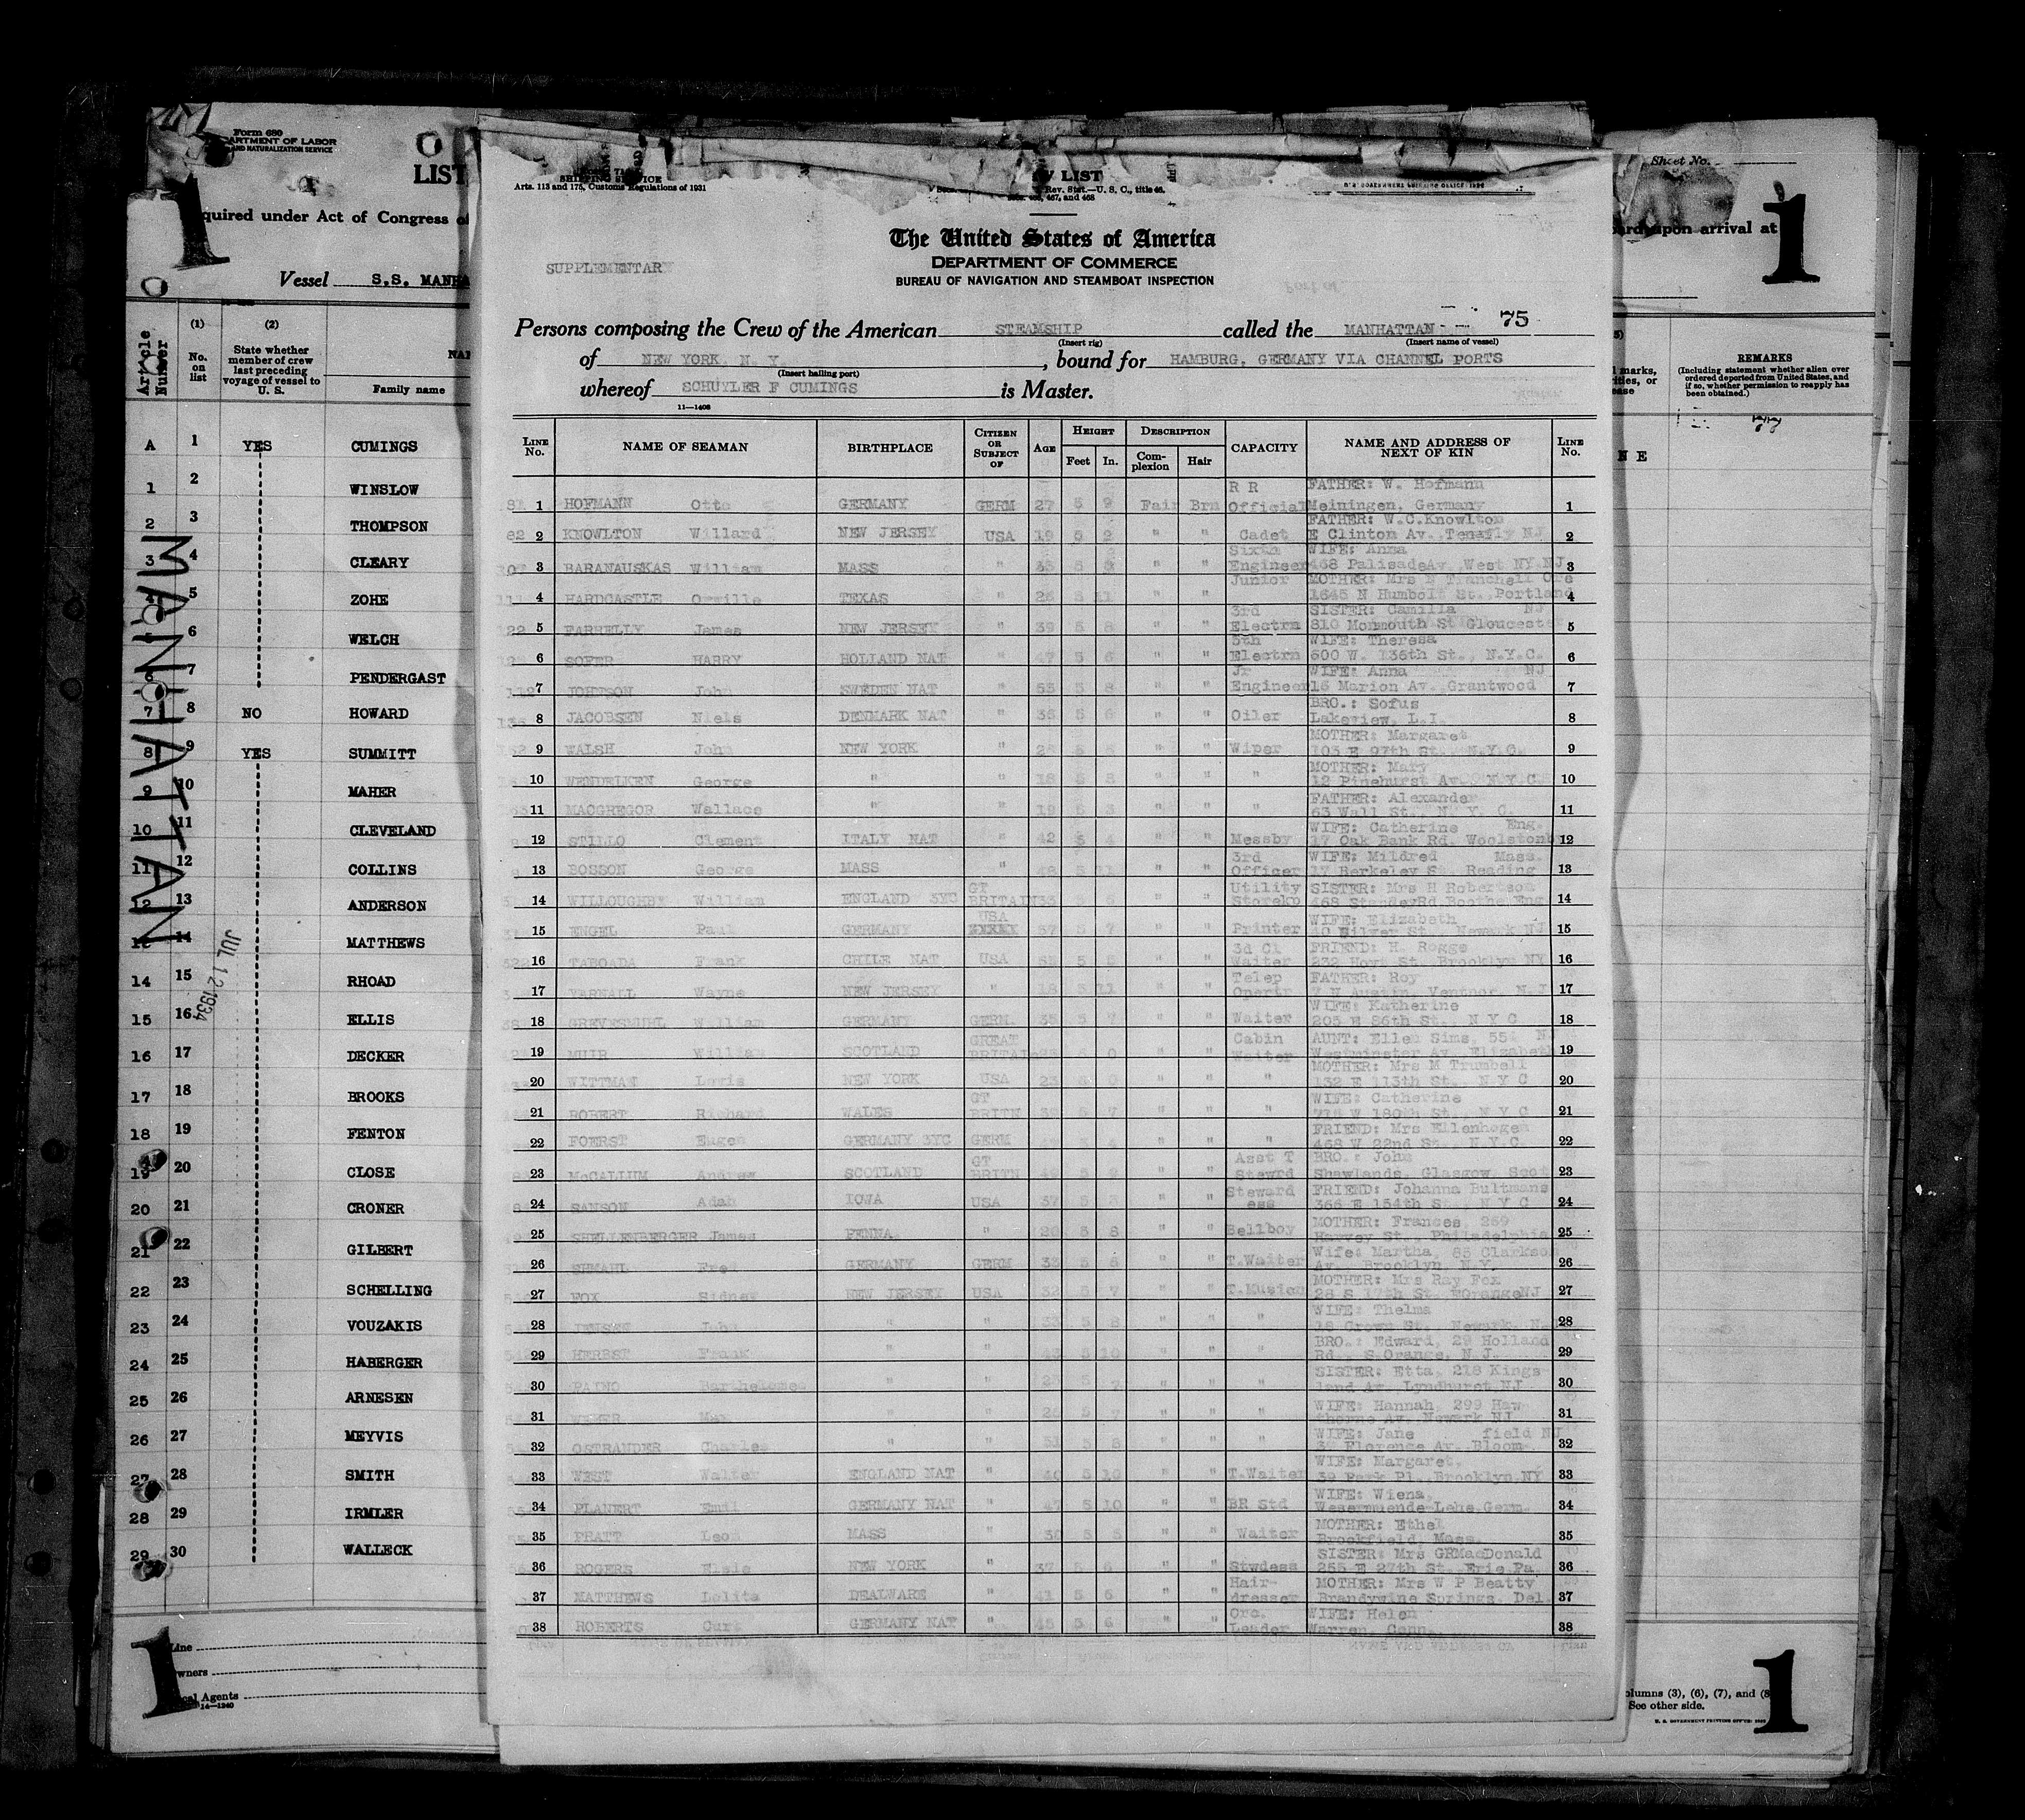 Form 680
DEPARTMENT OF LABOR
AND NATURALIZATION SERVICE
LIST
quired under Act of Congress of
Vessel S.S. MANHA
Article Number
(1) No. on list
(2) State whether member of crew last preceding voyage of vessel to U. S.
Family name
A 1 YES CUMINGS
1 2 WINSLOW
2 3 THOMPSON
3 4 CLEARY
5 ZOHE
6 WELCH
6 7 PENDERGAST
7 8 NO HOWARD
8 9 YES SUMMITT
9 10 MAHER
10 11 CLEVELAND
11 12 COLLINS
12 13 ANDERSON
14 MATTHEWS
14 15 RHOAD
15 16 ELLIS
16 17 DECKER
17 18 BROOKS
18 19 FENTON
19 20 CLOSE
20 21 CRONER
21 22 GILBERT
22 23 SCHELLING
23 24 VOUZAKIS
24 25 HABERGER
25 26 ARNESEN
26 27 MEYVIS
27 28 SMITH
28 29 IRMLER
29 30 WALLECK
MANHATTAN
JUL 12 1934
Line
wners
cal Agents
14—1240
1
1
SHIPPING SERVICE
Arts. 113 and 175, Customs Regulations of 1931
W LIST
Rev. Stat.—U. S. C., title 46,
467, and 468
The United States of America
DEPARTMENT OF COMMERCE
BUREAU OF NAVIGATION AND STEAMBOAT INSPECTION
SUPPLEMENTARY
Persons composing the Crew of the American STEAMSHIP called the MANHATTAN 75
(Insert rig) (Insert name of vessel)
of NEW YORK N. Y. , bound for HAMBURG, GERMANY VIA CHANNEL PORTS
(Insert hailing port)
whereof SCHUYLER F CUMINGS is Master.
11—1408
LINE No. NAME OF SEAMAN BIRTHPLACE CITIZEN OR SUBJECT OF AGE HEIGHT Feet In. DESCRIPTION Complexion Hair CAPACITY NAME AND ADDRESS OF NEXT OF KIN LINE No.
1 HOFMANN Otto GERMANY GERM 27 5 9 Fair Brn R R Official FATHER: W. Hofmann Meiningen, Germany 1
2 KNOWLTON Willard NEW JERSEY USA 19 5 2 " " Cadet FATHER: W.C.Knowlton E Clinton Av. Tenafly NJ 2
3 BARANAUSKAS William MASS " " " Sixth Engineer WIFE: Anna 468 PalisadeAv West NY NJ 3
4 HARDCASTLE Orville TEXAS " 26 5 11 " " Junior MOTHER: Mrs N Tranchell Ore 1645 N Humbolt St. Portland 4
5 FARRELLY James NEW JERSEY " 39 5 8 " " 3rd Electrn SISTER: Camilla NJ 810 Monmouth St Gloucester 5
6 SOFER HARRY HOLLAND NAT " 47 5 6 " " 5th Electrn WIFE: Theresa 600 W. 136th St., N.Y.C. 6
7 JOHNSON John SWEDEN NAT " 53 5 8 " " Jr Engineer WIFE: Anna NJ 15 Marion Av. Grantwood 7
8 JACOBSEN Niels DENMARK NAT " 36 5 6 " " Oiler BRO.: Sofus Lakeview, L.I. 8
9 WALSH John NEW YORK " " " Wiper MOTHER: Margaret 103 E 97th St. N.Y.C. 9
10 WENDELKEN George " " 18 5 8 " " " MOTHER: Mary 12 Pinehurst Av N.Y.C. 10
11 MACGREGOR Wallace " " 19 5 3 " " " FATHER: Alexander 63 Wall St. N. Y. C. 11
12 STILLO Clement ITALY NAT " 42 5 4 " " Messby WIFE: Catherine Eng. 17 Oak Bank Rd. Woolston 12
13 BOSSON George MASS " 48 5 11 " " 3rd Officer WIFE: Mildred Mass. 17 Berkeley S Reading 13
14 WILLOUGHBY William ENGLAND 3YC GT BRITAIN 5 6 " " Utility Storekp SISTER: Mrs H Robertson 468 StanleyRd Boothe Eng 14
15 ENGEL Paul GERMANY USA 57 5 7 " " Printer WIFE: Elizabeth 40 Silver St. Newark NJ 15
16 TABOADA Frank CHILE NAT USA 5 5 " " 3d Cl Waiter FRIEND: H. Rogge 232 Hoyt St Brooklyn NY 16
17 YARNALL Wayne NEW JERSEY " 18 5 11 " " Telep Opertr FATHER: Roy 7 N Austin Ventnor, N.J 17
18 GREVESMUHL William GERMANY GERM. 35 5 7 " " Waiter WIFE: Katherine 205 E 86th St. N Y C 18
19 MUIR William SCOTLAND GREAT BRITAI 0 " " Cabin Waiter AUNT: Ellen Sims, 55 NJ Westminster Av Elizabeth 19
20 WITTMAN Lewis NEW YORK USA 23 5 0 " " " MOTHER: Mrs M Trumbell 132 E 113th St. N Y C 20
21 ROBERT Richard WALES GT BRITN 5 7 " " " WIFE: Catherine 715 W 180th St., N Y C 21
22 FOERST Eugen GERMANY 3YC GERM 5 4 " " " FRIEND: Mrs Ellenhogen 468 W 22nd St. N.Y.C. 22
23 McCALLUM Andrew SCOTLAND GT BRITN 49 5 9 " " Asst T Stewrd BRO.: John Shawlands, Glasgow, Scot 23
24 SANSON Adah IOWA USA 37 5 3 " " Steward ess FRIEND: Johanna Bultmans 366 E 154th S , N Y C 24
25 SHELLENBERGER James PENNA " 20 5 8 " " Bellboy MOTHER: Frances, 259 Harvey St., Philadelphia 25
26 SHMAHL Fred GERMANY GERM 33 5 8 " " T.Waiter Wife: Martha, 83 Clarkson Av. Brooklyn, N.Y. 26
27 FOX Sidney NEW JERSEY USA 32 5 7 " " T.Musicn MOTHER: Mrs Ray Fox 28 S 17th St. WOrangeNJ 27
28 JENSEN John " " 33 5 8 " " " WIFE: Thelma 18 Crown St. Newark, N. 28
29 HERBST Frank " " 5 10 " " " BRO.: Edward, 29 Holland Rd. S.Orange, N.J. 29
30 PAINO Bartholomeo " " 5 7 " " " SISTER: Etta, 218 Kings land Av Lyndhurst NJ 30
31 WEBER Max " " 26 5 7 " " " WIFE: Hannah, 299 Haw thorne Av. Newark NJ 31
32 OSTRANDER Charles " " 5 8 " " " WIFE: Jane field NJ 37 Florence Av. Bloom- 32
33 WEST Walter ENGLAND NAT " 40 5 10 " " T.Waiter WIFE: Margaret, 39 Park Pl. Brooklyn NY 33
34 PLANERT Emil GERMANY NAT " 47 5 10 " " BR Std WIFE: Wiena, Wesermuende-Lehe Germ. 34
35 PRATT Leon MASS " 30 5 5 " " Waiter MOTHER: Ethel Brookfield, Mass. 35
36 ROGERS Elsie NEW YORK " 37 5 6 " " Stwdess SISTER: Mrs GRMacDonald 255 E 27th St. Erie Pa. 36
37 MATTHEWS Lolita DEALWARE " 41 5 6 " " Hair- dresser MOTHER: Mrs W P Beatty Brandywine Springs. Del. 37
38 ROBERTS Curt GERMANY NAT " 45 5 6 " " Orc. Leader WIFE: Helen Warren, Conn. 38
Sheet No.
ard upon arrival at
1
REMARKS
(Including statement whether alien ever ordered deported from United States, and if so, whether permission to reapply has been obtained.)
N E
olumns (3), (6), (7), and (8
See other side.
1